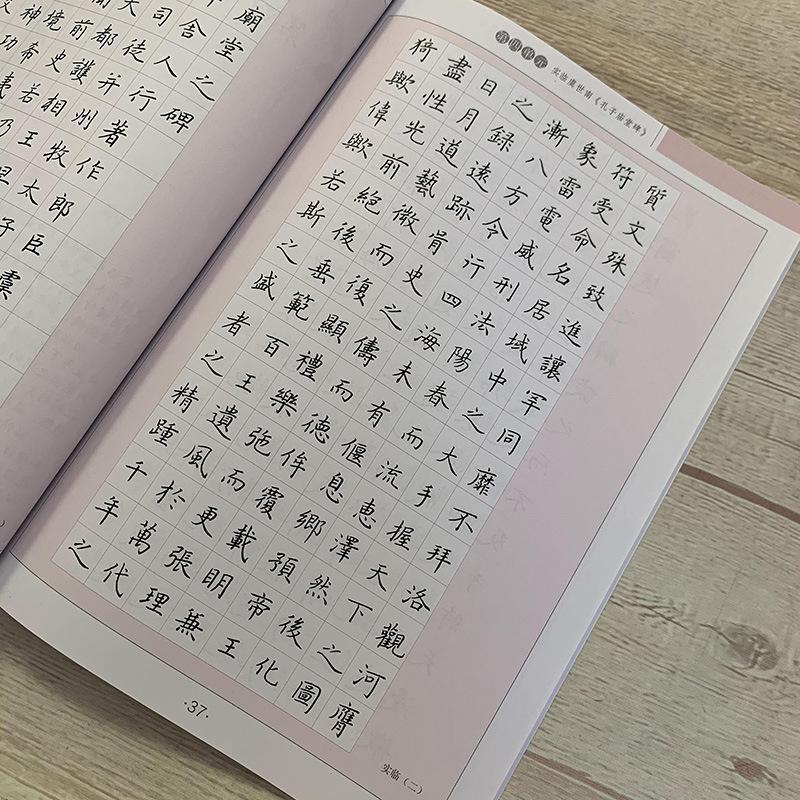 廟堂之碑
舍人行著作郎臣虞
司徒并州牧太子
大都護相王
前史若乃
境希夷
神功
第四单元 实临虞世南《孔子庙堂碑》
質文殊致進讓罕同靡不拜洛觀河膺
符受命名居域中之大手握天下之圖
象雷電威刑法陽春而流恵澤然後化
漸八方令行四海未有偃息鄉預帝王
之録遠跡胥史之儔而德侔覆載明兼
日月道藝微而復顯禮樂弛而更張理
盡性光前絕後垂範百王遺風於萬代
猗歟偉歟若斯之盛者之精踵千年之
·37·
实临（二）